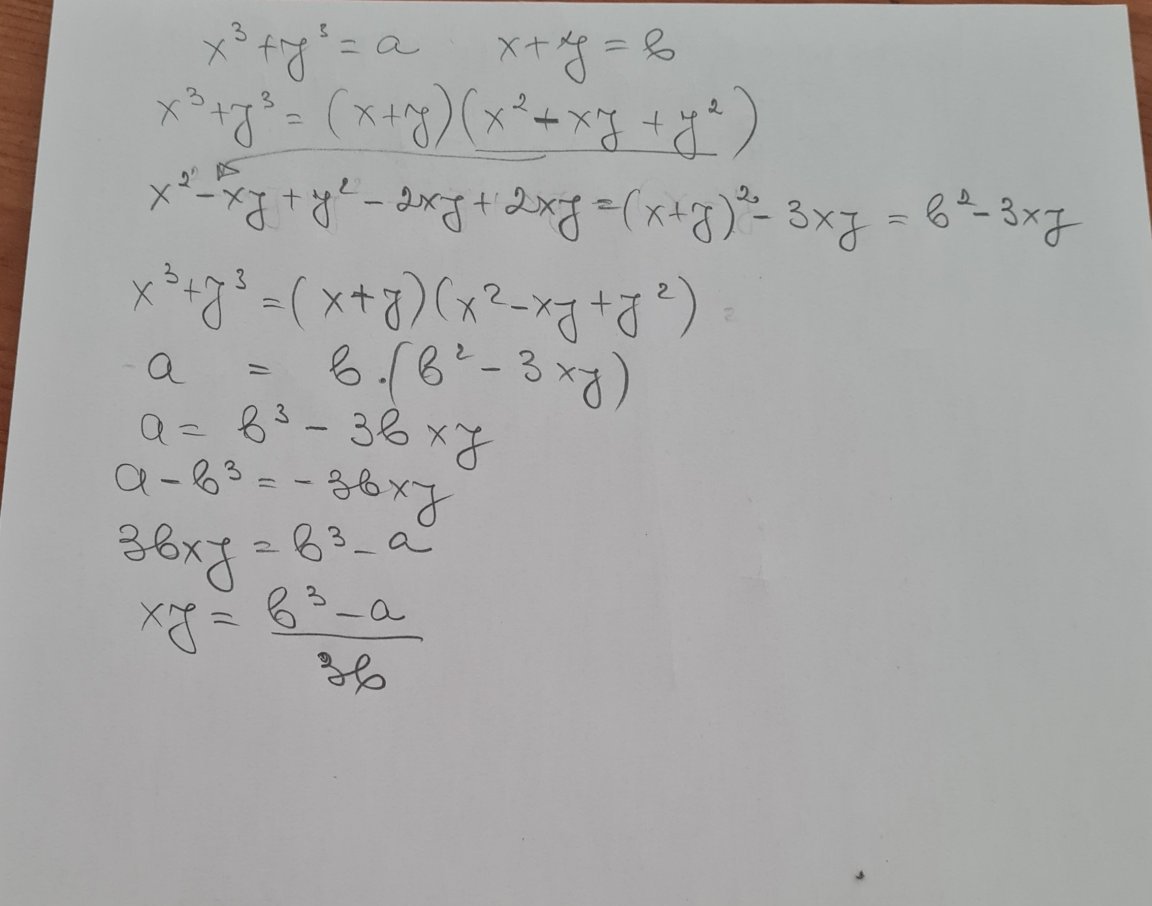 x³+y³=a x+y=b
x³+y³=(x+y)(x²-xy+y²)
x²-xy+y²-2xy+2xy=(x+y)²-3xy=b²-3xy
x³+y³=(x+y)(x²-xy+y²)
a = b.(b²-3xy)
a=b³-3bxy
a-b³=-3bxy
3bxy=b³-a
xy=b³-a
3b